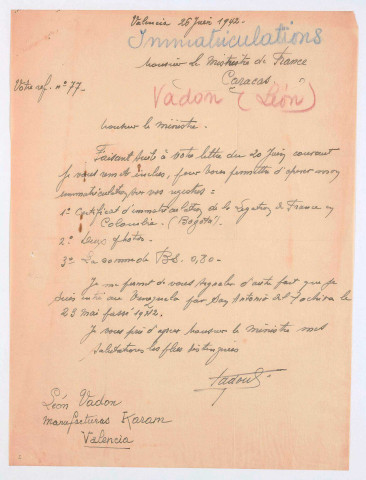 Valencia 26 Juin 1942.
Immatriculations
Monsieur le Ministre de France
Caracas.
Votre ref. nº 77.
Vadon (Léon)
Monsieur le ministre.
Faisant suite à votre lettre du 20 Juin courant
Je vous remets inclus, pour vous permettre d'opérer mon
immatriculation sur vos registres =
1º Certificat d'immatriculation de la Légation de France en
Colombie. (Bogotá)
2º Deux photos.
3º La somme de BS. 0,80.
Je me permet de vous signaler d'autre part que je
suis entré au Venezuela par San Antonio del Tachira le
23 mai passé 1942.
Je vous prie d'agréer monsieur le ministre mes
salutations les plus distinguées
Léon Vadon
Manufacturas Karam
Valencia